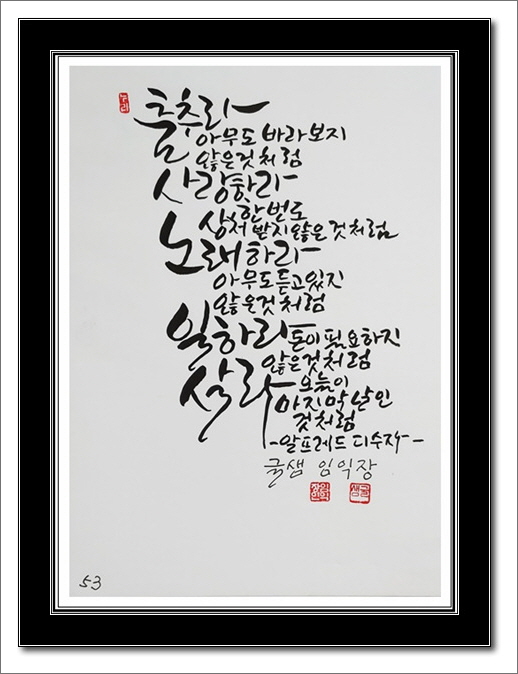 누리
춤추라
아무도 바라보지
않은것처럼
사랑하라
한번도
상처받지않은것처럼
노래하라
아무도듣고있지
않은것처럼
일하라 돈이필요하지
않은것처럼
살라 오늘이
마지막날인
것처럼
-알프레드 디수자-
글샘 임익장
53